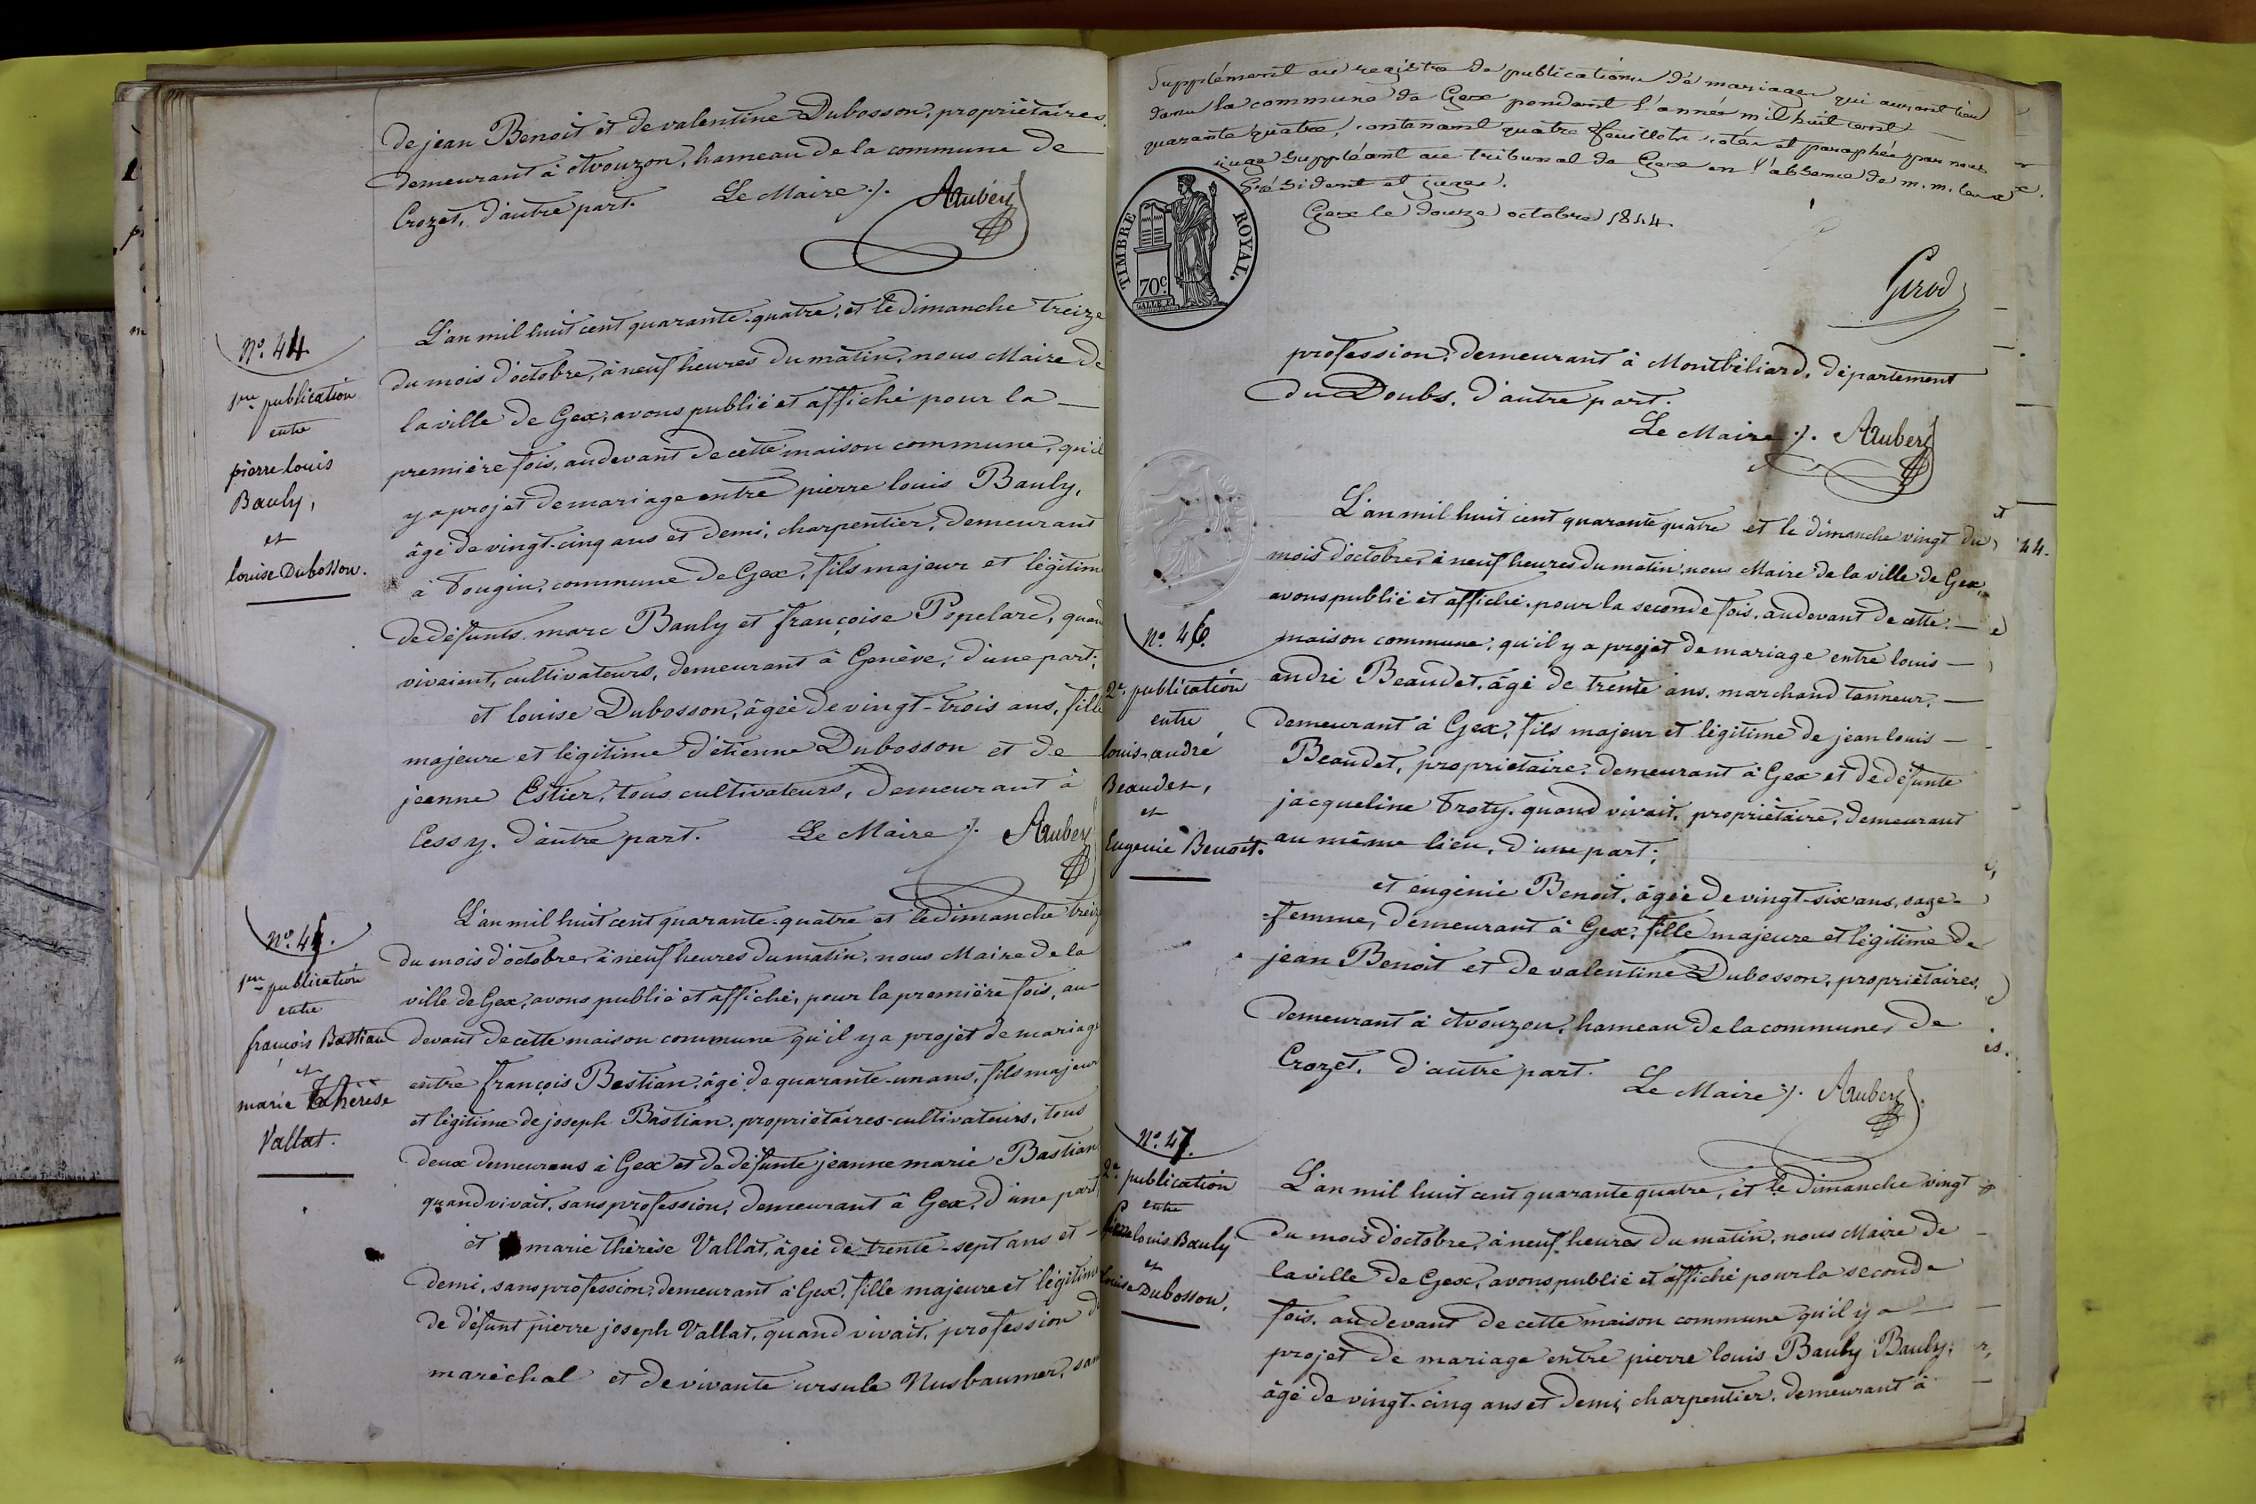 de jean Benoit et de valentine Dubosson, propriétaires,
demeurant à Avouzon, hameau de la commune de
Crozet, d'autre part. Le Maire /. Aubery
N°. 44
1ère publication
entre
pierre louis
Bauly,
et
louise Dubosson.
L'an mil huit cent quarante-quatre, et le dimanche treize
du mois d'octobre, à neuf heures du matin, nous Maire de
la ville de Gex, avons publié et affiché pour la —
première fois, audevant de cette maison commune, qu'il
y a projet de mariage entre pierre louis Bauly,
âgé de vingt-cinq ans et demi, charpentier, demeurant
à Tougin, commune de Gex, fils majeur et légitime
de défunts marc Bauly et françoise Popelard, quand
vivaient, cultivateurs, demeurant à Genève, d'une part;
et louise Dubosson, âgée de vingt-trois ans, fille
majeure et légitime d'étienne Dubosson et de —
jeanne Estier, tous cultivateurs, demeurant à
Cessy, d'autre part. Le Maire /. Aubery
N°. 45.
1ère publication
entre
françois Bastian
et
marie thérèse
Vallat.
L'an mil huit cent quarante-quatre et le dimanche treize
du mois d'octobre à neuf heures du matin, nous Maire de la
ville de Gex, avons publié et affiché, pour la première fois, au-
devant de cette maison commune qu'il y a projet de mariage
entre françois Bastian, âgé de quarante-un ans, fils majeur
et légitime de joseph Bastian, propriétaires-cultivateurs, tous
deux demeurans à Gex et de défunte jeanne marie Bastian
quand vivait, sans profession, demeurant à Gex, d'une part
et marie thérèse Vallat, âgée de trente-sept ans et —
demi, sans profession, demeurant à Gex, fille majeure et légitime
de défunt pierre joseph Vallat, quand vivait, profession de
maréchal et de vivante ursule Nusbaumer, sans
Supplément au registre de publications de mariages qui auront lieu
dans la commune de Gex pendant l'année mil huit cent
quarante quatre, contenant quatre feuillets cotés et paraphés par nous
juge suppléant au tribunal de Gex en l'absence de m.m. les
président et juges.
Gex le douze octobre 1844.
Girod
TIMBRE ROYAL.
70 c.
profession, demeurant à Montbéliard, département
du Doubs, d'autre part.
Le Maire /. Aubery
N°. 46.
2e. publication
entre
louis-andré
Beaudet,
et
Eugenie Benoit.
L'an mil huit cent quarante quatre et le dimanche vingt du
mois d'octobre, à neuf heures du matin, nous Maire de la ville de Gex,
avons publié et affiché, pour la seconde fois, audevant de cette —
maison commune, qu'il y a projet de mariage entre louis —
andré Beaudet, âgé de trente ans, marchand tanneur, —
demeurant à Gex, fils majeur et légitime de jean louis —
Beaudet, propriétaire, demeurant à Gex et de défunte
jacqueline Troty, quand vivait, propriétaire, demeurant
au même lieu, d'une part;
et eugénie Benoit, âgée de vingt-six ans, sage-
femme, demeurant à Gex, fille majeure et légitime de
jean Benoit et de valentine Dubosson, propriétaires,
demeurant à Avouzon, hameau de la commune de
Crozet, d'autre part.
Le Maire /. Aubery
N°. 47.
2e. publication
entre
Pierre louis Bauly
et
louise Dubosson.
L'an mil huit cent quarante quatre, et le dimanche vingt
du mois d'octobre, à neuf heures du matin, nous Maire de
la ville de Gex, avons publié et affiché pour la seconde
fois, audevant de cette maison commune qu'il y a —
projet de mariage entre pierre louis Bauly Bauly,
âgé de vingt-cinq ans et demi, charpentier, demeurant à
44.